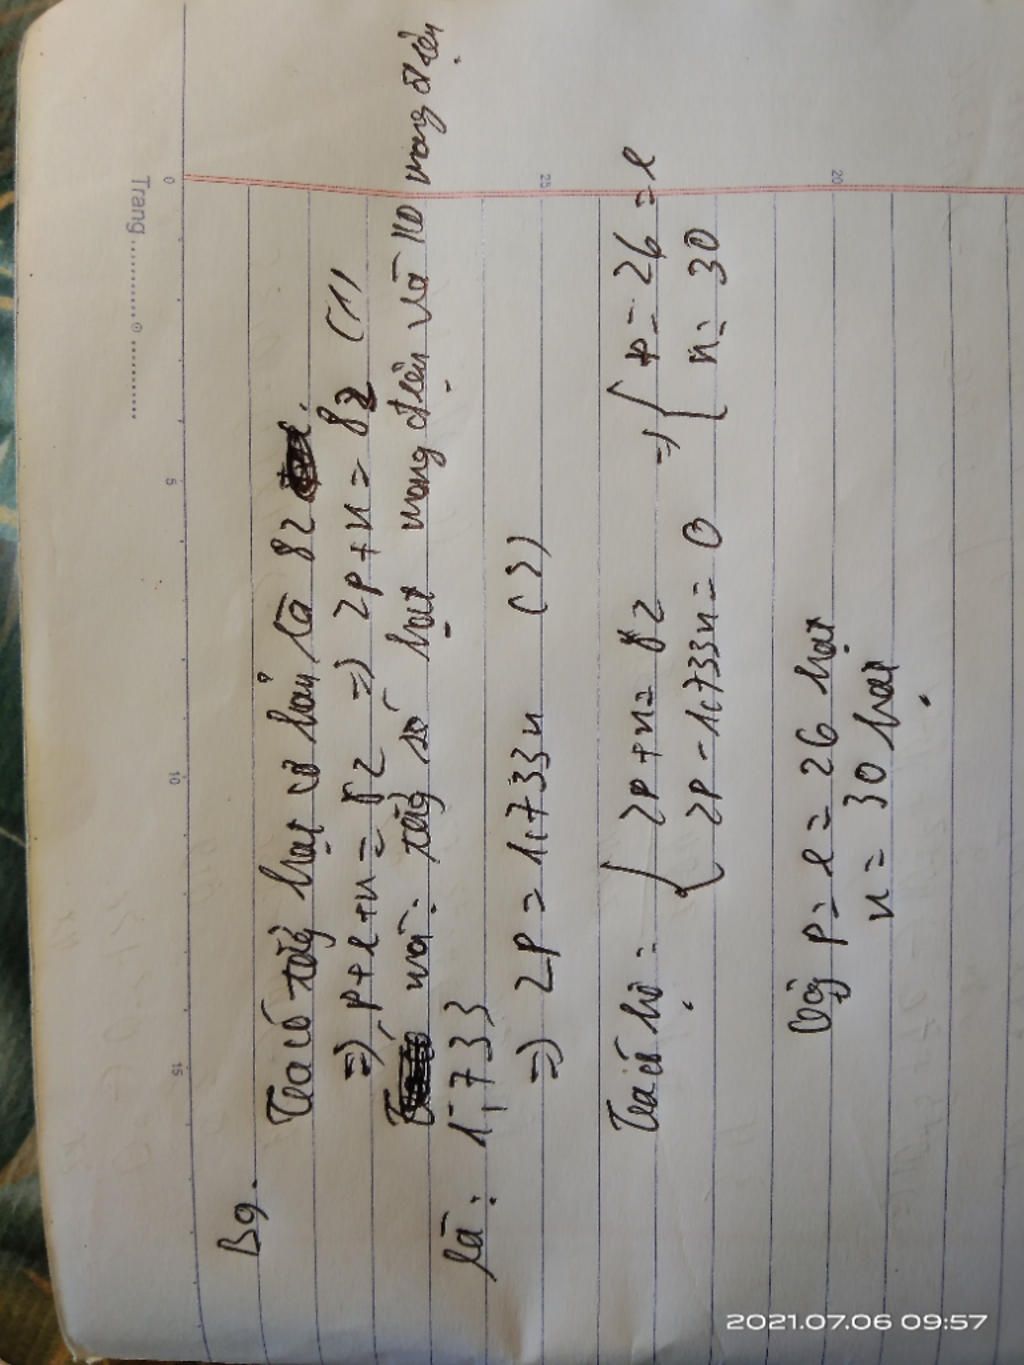 Trang.............
0
5
10
15
20
25
B9.
Ta có tổng hạt cơ bản là 82
=) p + e + n = 82 =) 2p + n = 82 (1)
mà: tổng số hạt mang điện và ko mang điện
là: 1,733
=) 2p = 1,733n (2)
Ta có hệ: { 2p + n = 82 =) { p = 26 = e
2p - 1,733n = 0 n = 30
Vậy p = e = 26 hạt
n = 30 hạt
2021.07.06 09:57